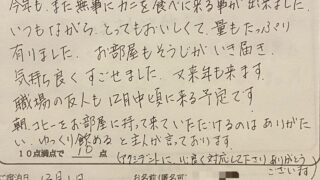 今年も、また無事にカニを食べに来る事が出来ました。
いつもながら、とってもおいしくて、量もたっぷり
有りました。お部屋もそうじがいき届き、
気持ち良くすごせました。又来年も来ます。
職場の友人も12月中頃に来る予定です。
朝、コーヒーをお部屋に持って来ていただけるのはありがた
い。ゆっくり飲めると主人が言っております。
10点満点で 10 点
(アクシデントに心良く対応して下さりありがとう
ございます
ご宿泊日 12月1日
お名前(匿名可